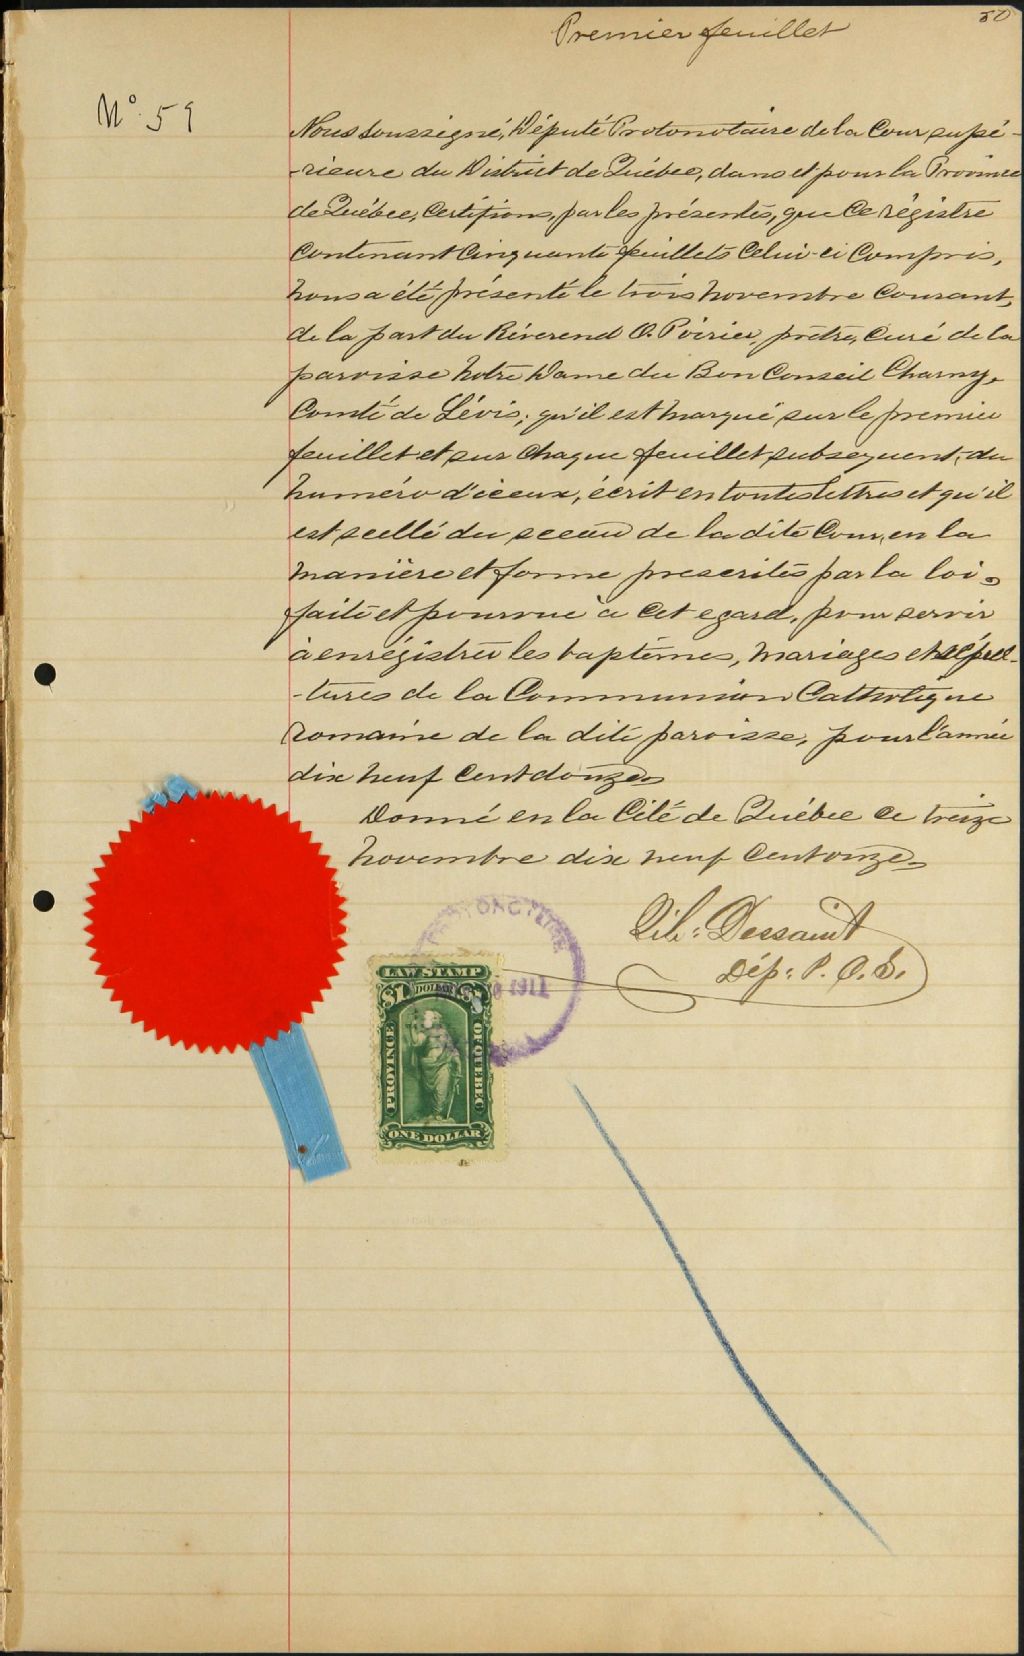 50
Premier feuillet
No. 59
Nous soussigné, Député Protonotaire de la Cour supé-
-rieure du District de Québec, dans et pour la Province
de Québec, Certifions, par les présentes, que ce régistre
contenant cinquante feuillets celui-ci compris,
nous a été présenté le trois novembre courant,
de la part du Révérend O. Poirier, prêtre, curé de la
paroisse Notre Dame du Bon Conseil Charny,
Comté de Lévis; qu'il est marqué sur le premier
feuillet et sur chaque feuillet subsequent, du
numéro d'iceux, écrit en toutes lettres et qu'il
est scellé du sceau de la dite Cour, en la
manière et forme prescrites par la loi
faite et pourvue à cet egard, pour servir
à enrégistrer les baptêmes, mariages et sépul-
-tures de la Communion Catholique
romaine de la dite paroisse, pour l'année
dix neuf cent douze
Donné en la Cité de Québec ce treize
novembre dix neuf cent onze
Dessaint
Dép: P. C. S.
1911
LAW STAMP
$1 DOLLAR $1
PROVINCE OF QUEBEC
ONE DOLLAR